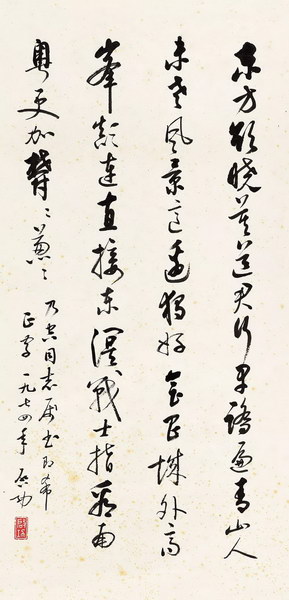 東方欲曉莫道君行早踏遍青山人
未老風景這邊獨好會昌城外高
峯顛連直接東溟戰士指看南
粵更加鬱〻葱〻
同志屬書即希
正字 一九七四年 启功